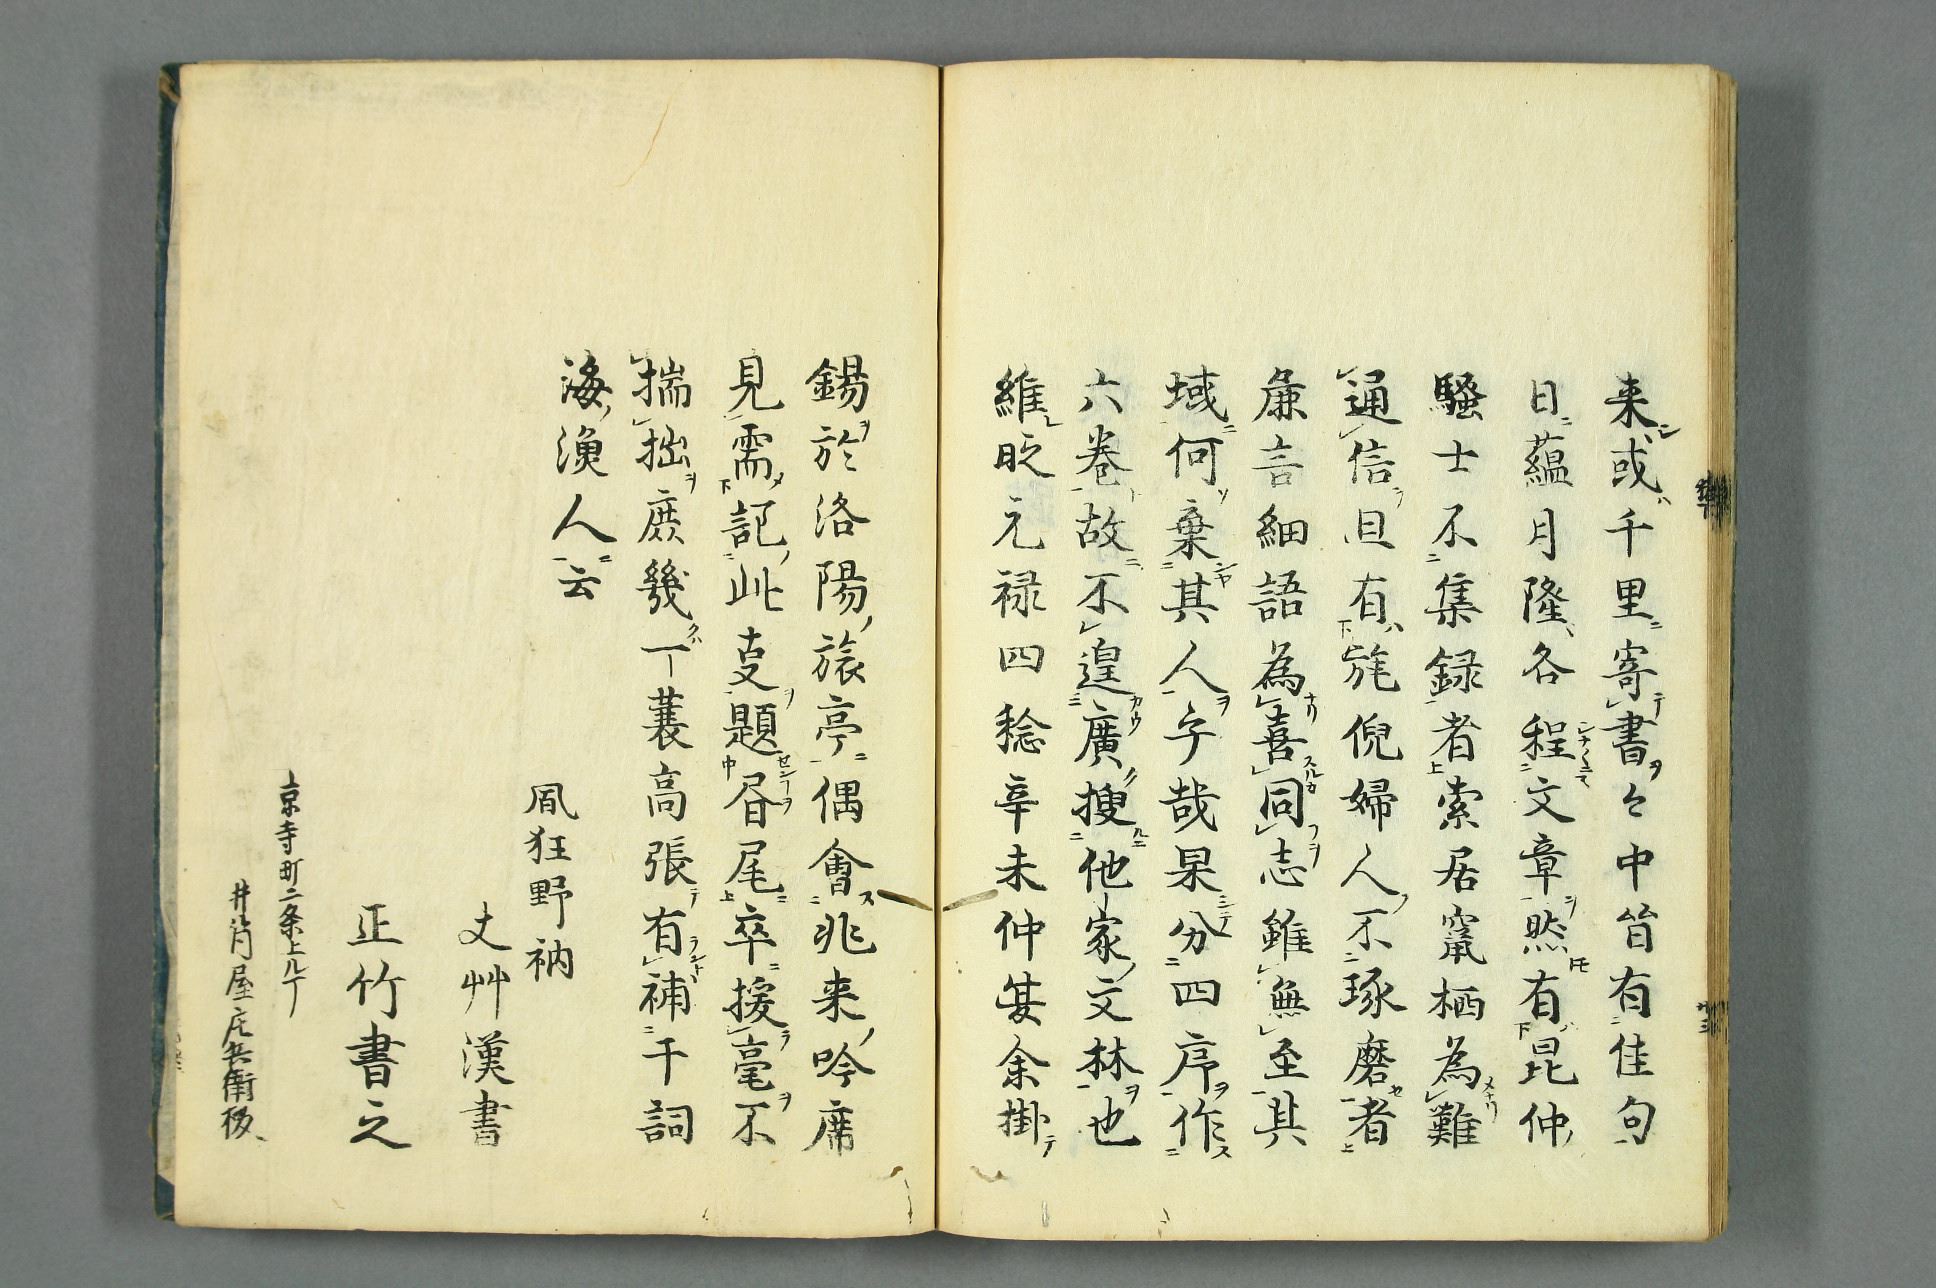 来或千里寄書々中皆有佳句
日蘊月隆各程文章然有昆仲
騒士不集録者索居竄栖為難
通信且有旄倪婦人不琢磨者
麁言細語為喜同志雖無至其
域何棄其人乎哉果分四序作
六巻故不遑廣搜他家文林也
維旹元禄四稔辛未仲夏余掛
錫於洛陽旅亭偶會兆来吟席
見需記此事題昏尾卒援毫不
揣拙庶幾一蓑高張有補干詞
海漁人云
風狂野衲
丈艸漢書
正竹書之
京寺町二条上ル丁
井筒屋庄兵衛板